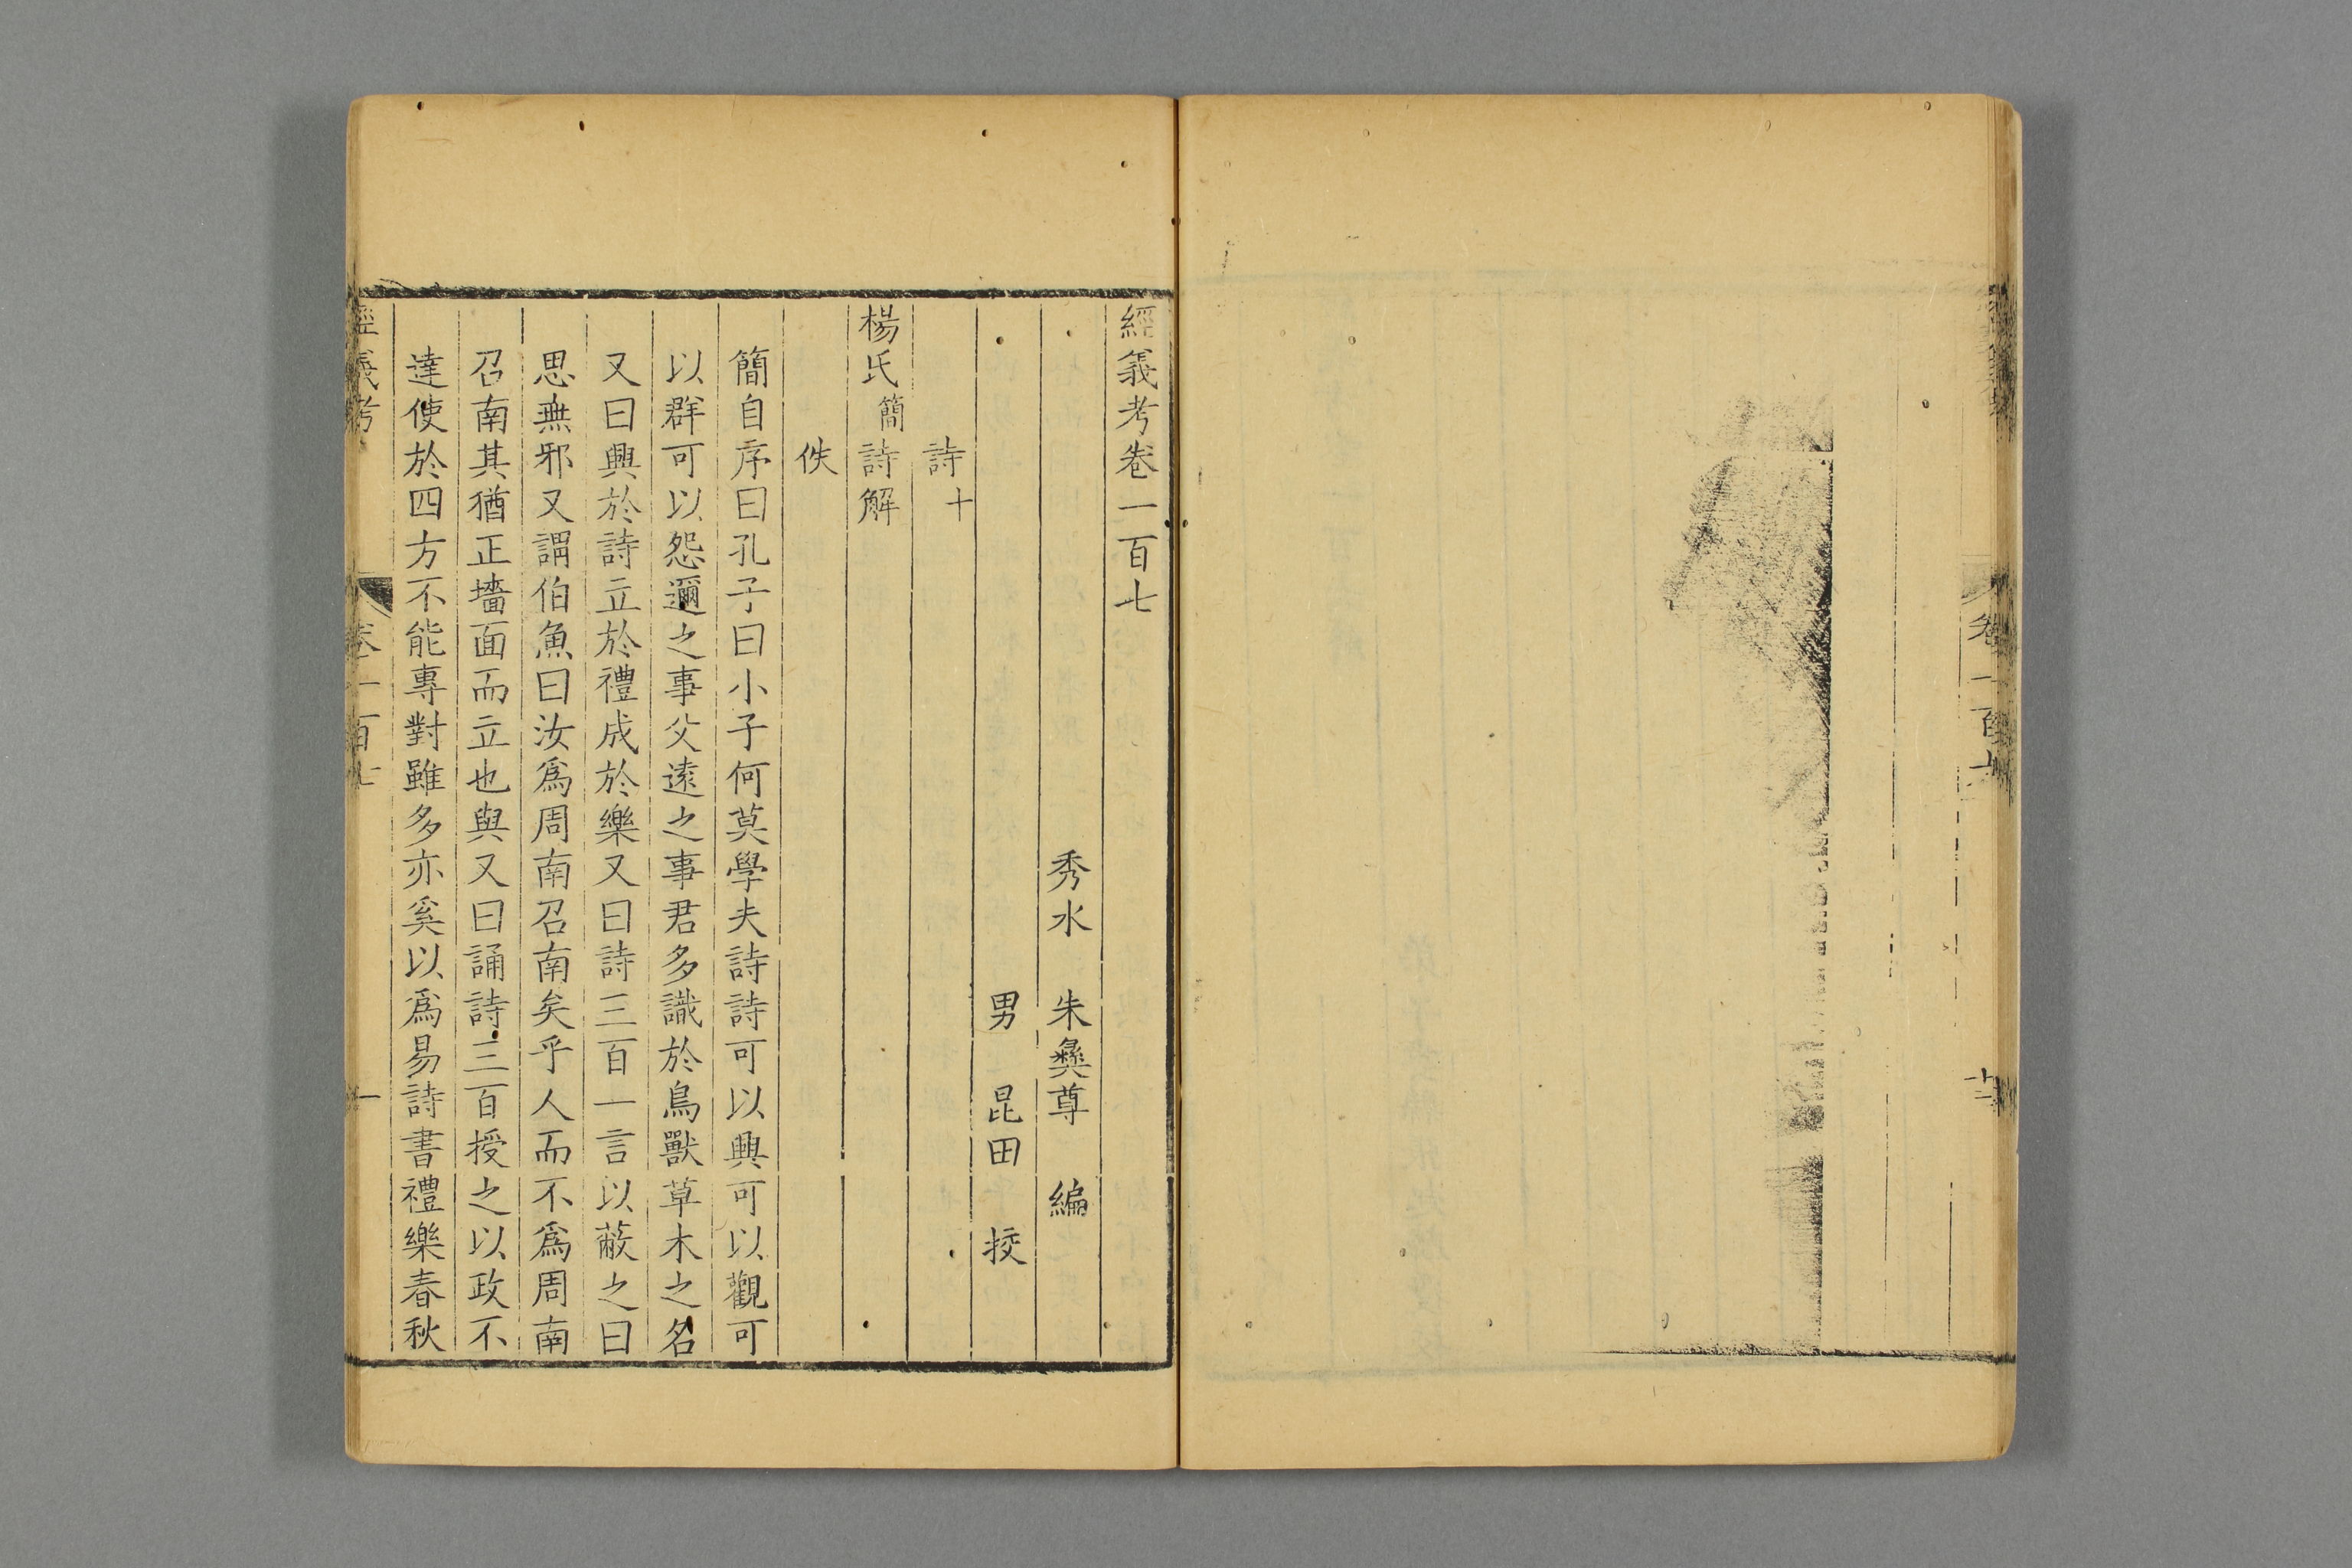 卷一百六
十二
經義考卷一百七
秀水 朱彝尊 編
男 昆田 挍
詩十
楊氏簡詩解
佚
簡自序曰孔子曰小子何莫學夫詩詩可以興可以觀可
以群可以怨邇之事父遠之事君多識於鳥獸草木之名
又曰興於詩立於禮成於樂又曰詩三百一言以蔽之曰
思無邪又謂伯魚曰汝爲周南召南矣乎人而不爲周南
召南其猶正墻面而立也與又曰誦詩三百授之以政不
達使於四方不能專對雖多亦奚以爲易詩書禮樂春秋
經義考
卷一百七
一